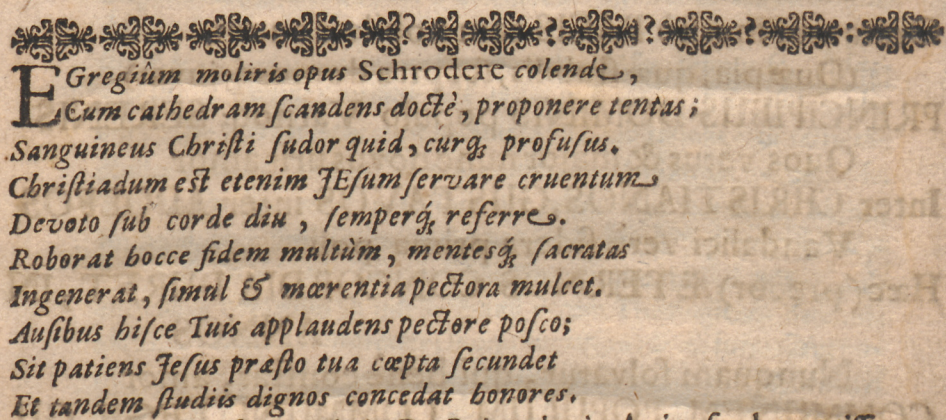 EGregiûm moliris opus Schrodere colende,
Cum cathedram scandens doctè, proponere tentas;
Sanguineus Christi sudor quid, curq; profusus.
Christiadum est etenim JEsum servare cruentum
Devoto sub corde diu, semperq́; referre.
Roborat hocce fidem multùm, mentesq́; sacratas
Ingenerat, simul & mœrentia pectora mulcet.
Ausibus hisce Tuis applaudens pectore posco;
Sit patiens Jesus præsto tua cœpta secundet
Et tandem studiis dignos concedat honores.